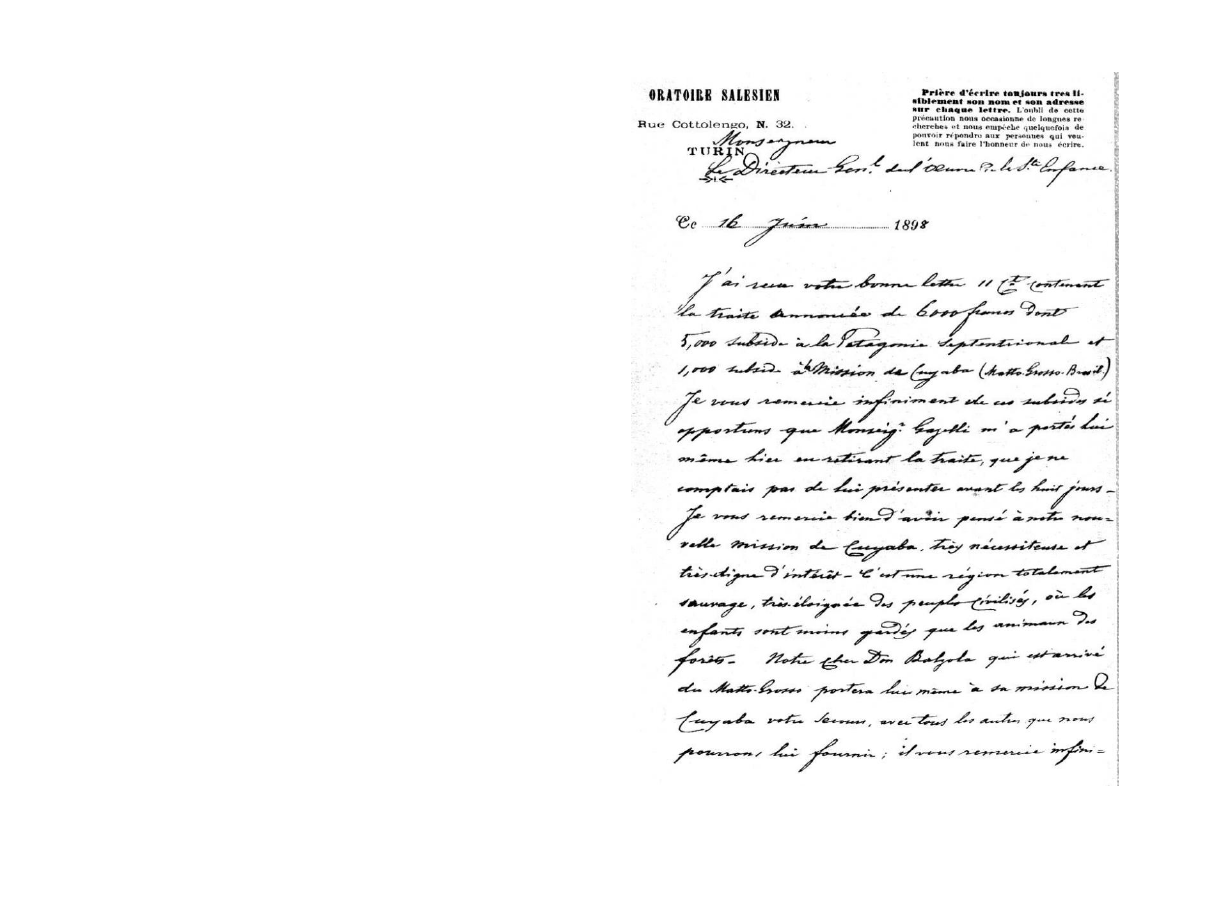 ORATOIRE SALESIEN
Rue Cottolengo, N. 32.
TURIN
Prière d'écrire toujours tres li-
siblement son nom et son adresse
sur chaque lettre. L'oubli de cette
précaution nous occasionne de longues re-
cherches et nous empêche quelquefois de
pouvoir répondre aux personnes qui veu-
lent nous faire l'honneur de nous écrire.
Monseigneur
Le Directeur Gen.l de l'Œuvre de la S.te Enfance.
Ce 16 Juin 1898
J'ai recu votre bonne lettre 11 Ct. contenant
la traite annoncée de 6000 francs dont
5,000 subside à la Patagonie Septentrional et
1,000 subside à la Mission de Cuyaba (Matto Grosso-Brasil)
Je vous remercie infiniment de ces subsides si
opportuns que Monseig.r Gazelli m'a portés lui
même hier en retirant la traite, que je ne
comptais pas de lui présenter avant les huit jours -
Je vous remercie bien d'avoir pensé à notre nou=
velle mission de Cuyaba, très nécessiteuse et
très digne d'intérêt - C'est une région totalement
sauvage, très éloignée des peuples civilisés, où les
enfants sont moins gardés que les animaux des
forêts - Notre cher Don Balzola qui est arrivé
du Matto-Grosso portera lui même à sa mission de
Cuyaba votre secours, avec tous les autres que nous
pourrons lui fournir; il vous remercie infini=